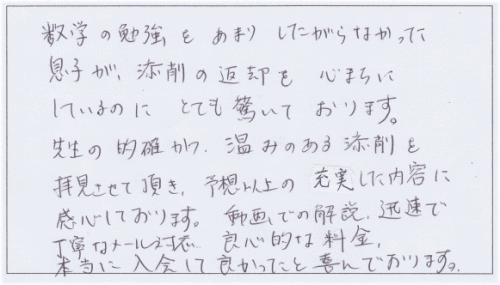 数学の勉強をあまりしたがらなかった
息子が、添削の返却を心まちに
しているのにとても驚いております。
先生の的確かつ、温みのある添削を
拝見させて頂き、予想以上の充実した内容に
感心しております。動画での解説、迅速で
丁寧なメール対応、良心的な料金、
本当に入会して良かったと喜んでおります。